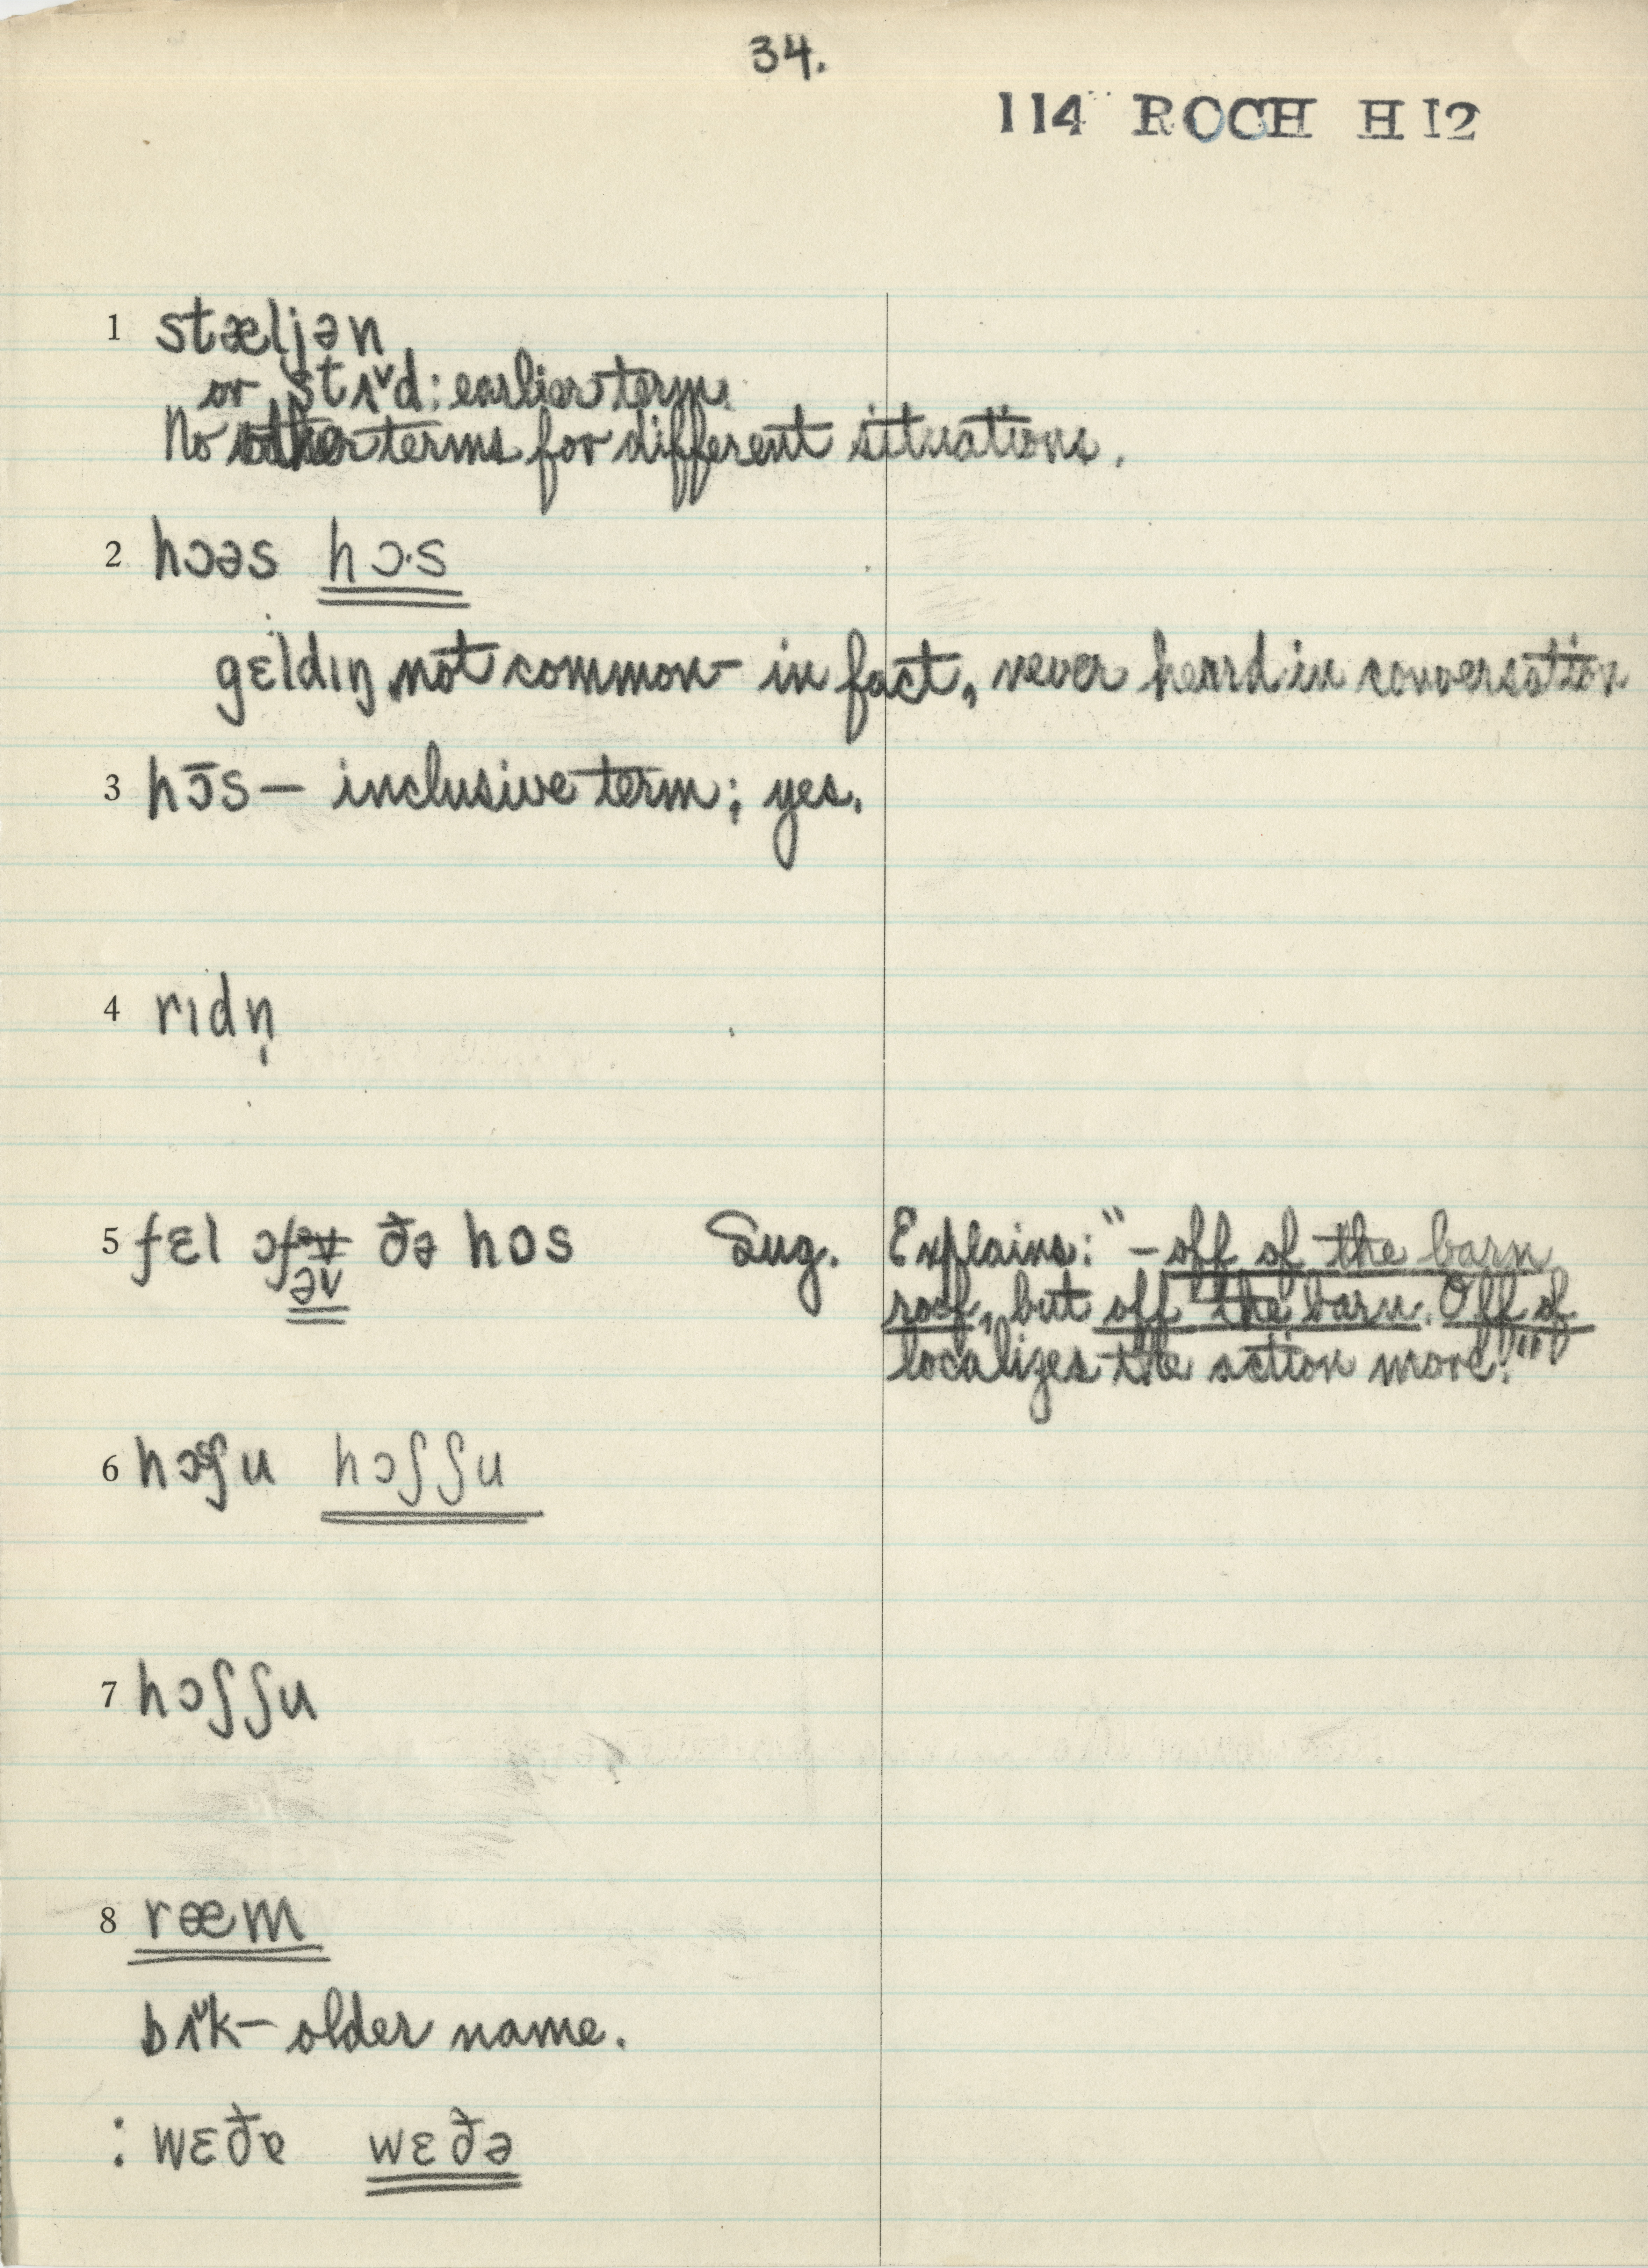 34.
114 ROCH H 12
1 stæljən
or stʌˇd: earlier term.
No other terms for different situations.
2 hɔəs hɔ·s
gɛldɪŋ not common – in fact, never heard in conversation
3 hɔ̄s – inclusive term; yes.
4 rɪdn̩
5 fɛl ɔf ðə hɒs Sug. Explains: "– off of the barn
əv roof, but off the barn. Off of
localizes the action more."
6 hɔʃu hɔʃʃu
7 hɔʃʃu
8 ræm
bʌˇk – older name.
: wɛðɐ wɛðə